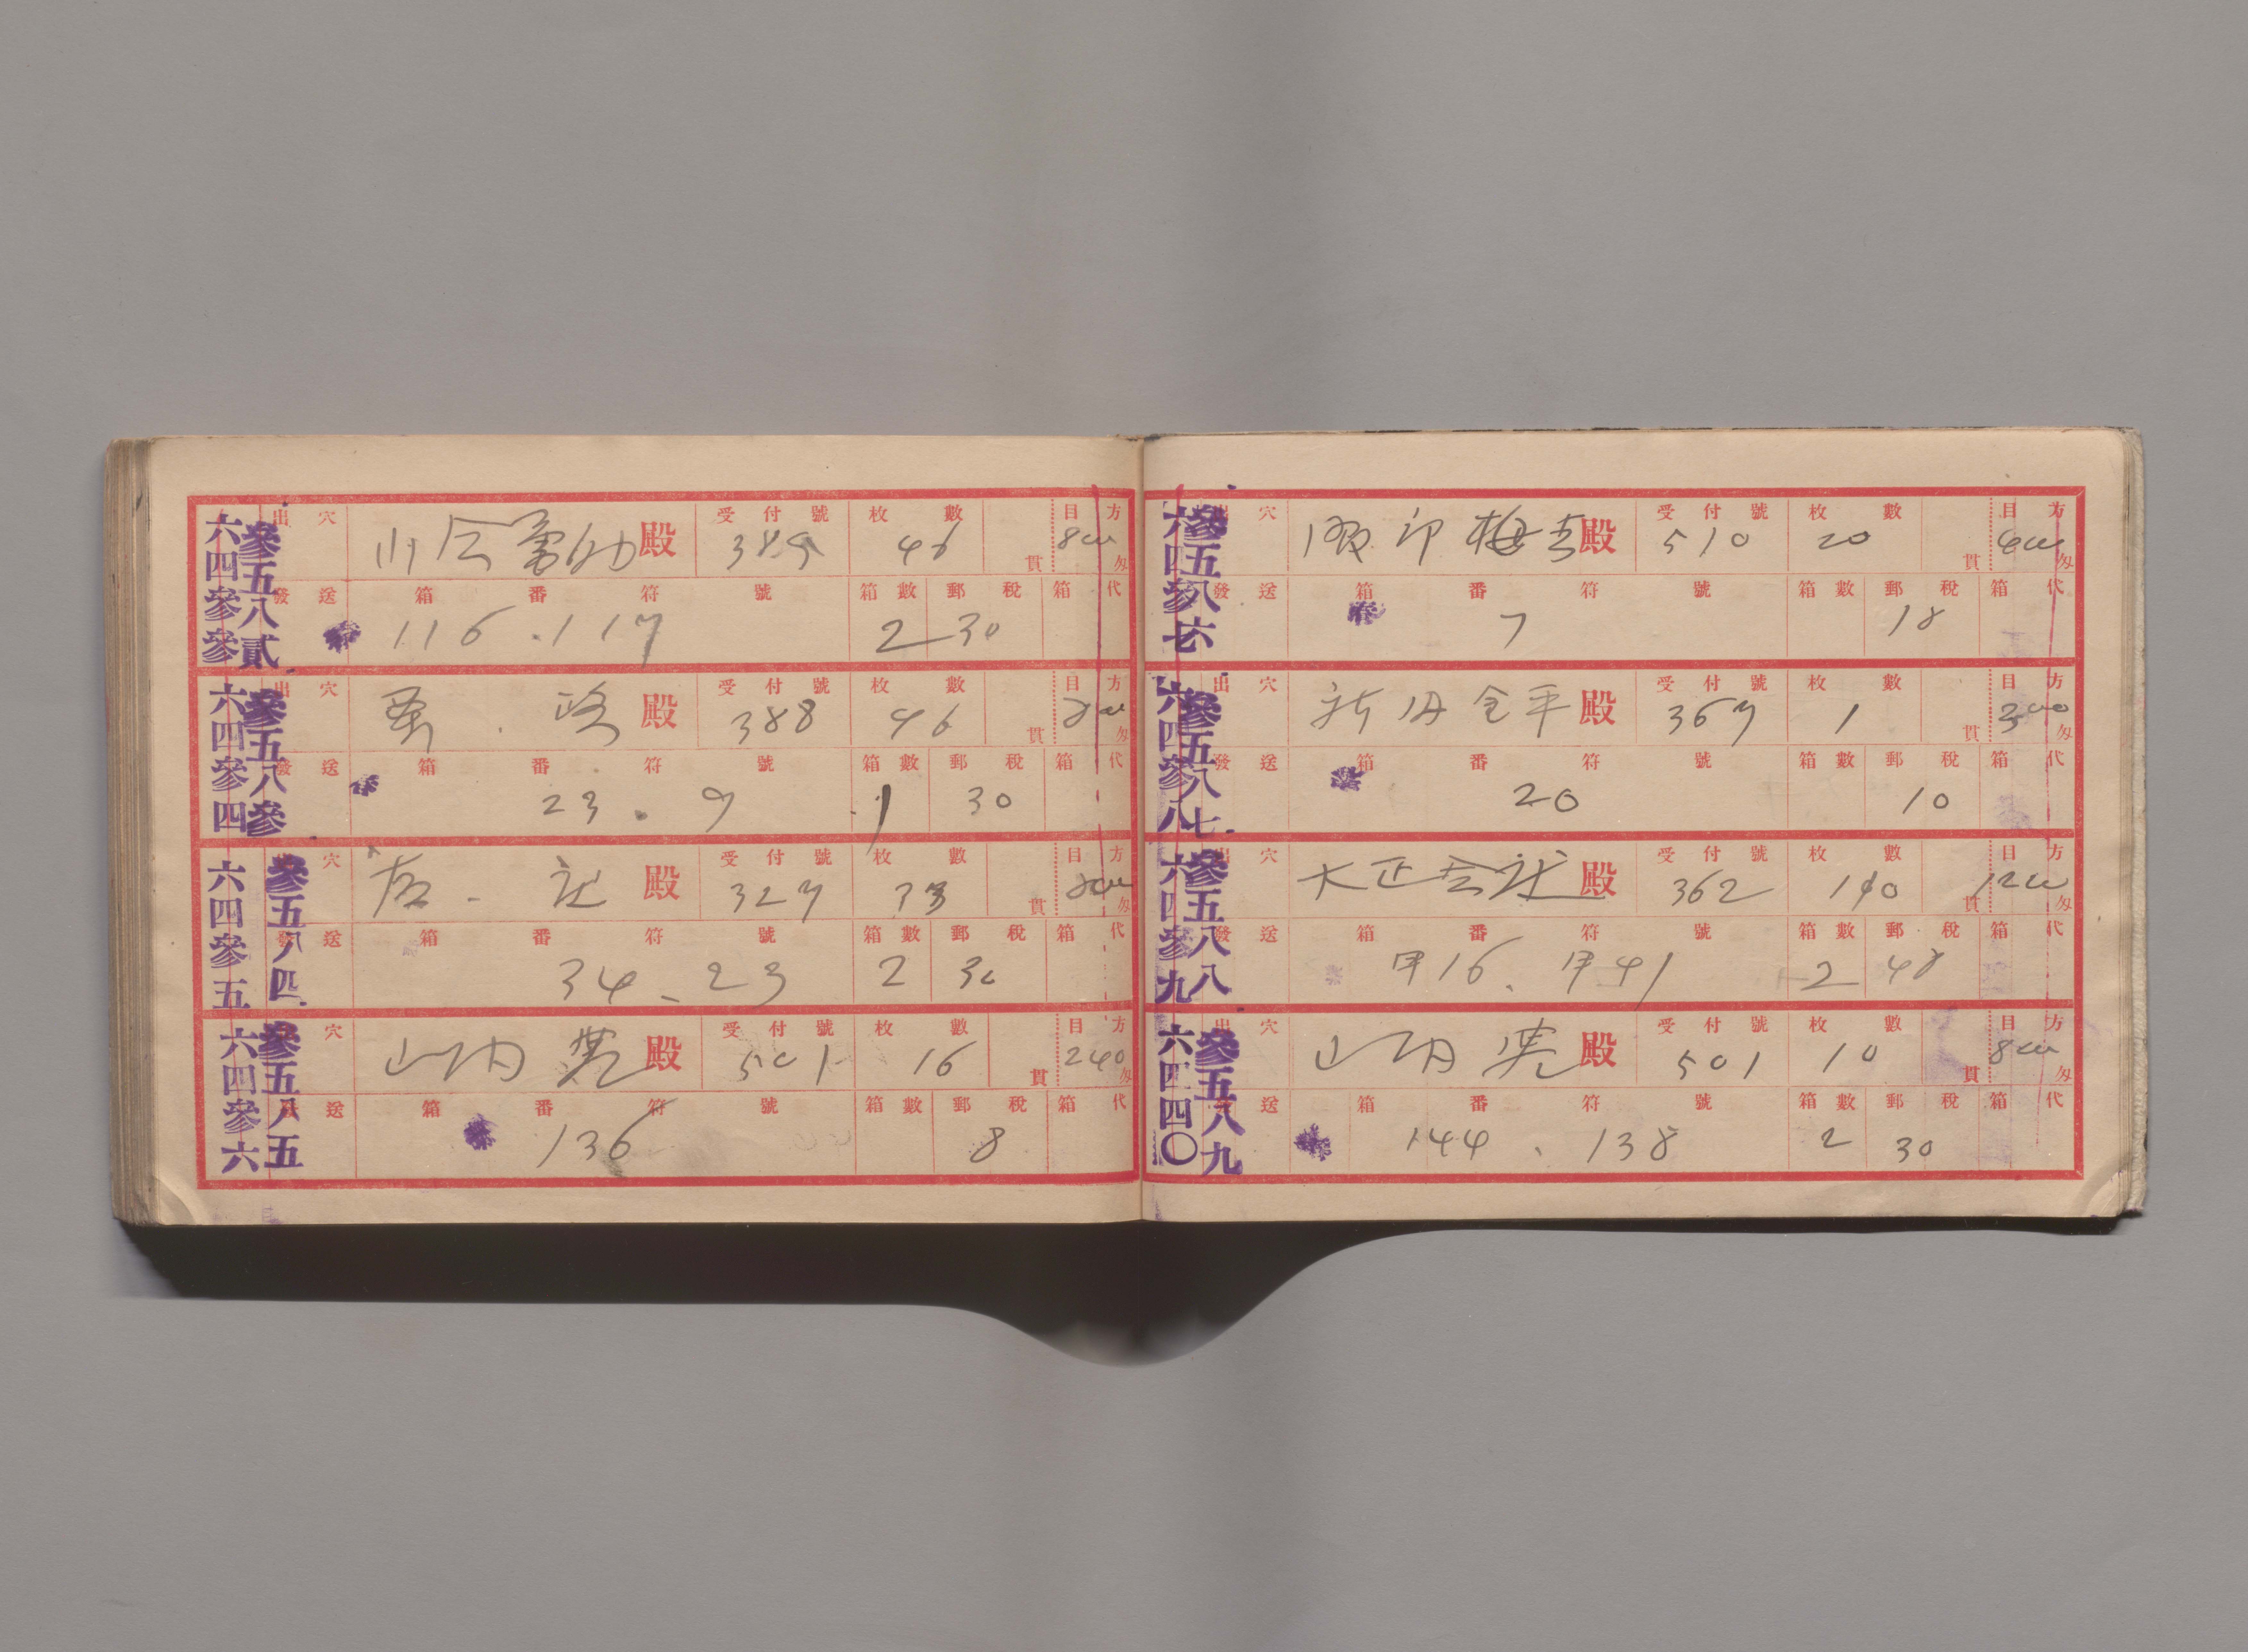 六四參參 參五八貳
出 穴 殿 受付號 389 枚數 46 貫 目方 匁
發送 箱番符號 116.117 箱數 2 郵稅 30 箱代
六四參四 參五八參
出 穴 殿 受付號 388 枚數 46 貫 目方 匁
發送 箱番符號 23.9 箱數 1 郵稅 30 箱代
六四參五 參五八四
穴 殿 受付號 327 枚數 33 貫 目方 匁
發送 箱番符號 34.23 箱數 2 郵稅 30 箱代
六四參六 參五八五
穴 山内 殿 受付號 501 枚數 16 貫 目方 240 匁
送 箱番符號 136 箱數 郵稅 8 箱代
六四參七 參五八六
出 穴 梅吉 殿 受付號 510 枚數 20 貫 目方 匁
發送 箱番符號 7 箱數 郵稅 18 箱代
六四參八 參五八七
出 穴 金平 殿 受付號 367 枚數 1 貫 目方 匁
發送 箱番符號 20 箱數 郵稅 10 箱代
六四參九 參五八八
出 穴 大正会社 殿 受付號 362 枚數 貫 目方 匁
發送 箱番符號 甲16.甲41 箱數 2 郵稅 48 箱代
六四四〇 參五八九
出 穴 山内 殿 受付號 501 枚數 10 貫 目方 匁
發送 箱番符號 144.138 箱數 2 郵稅 30 箱代